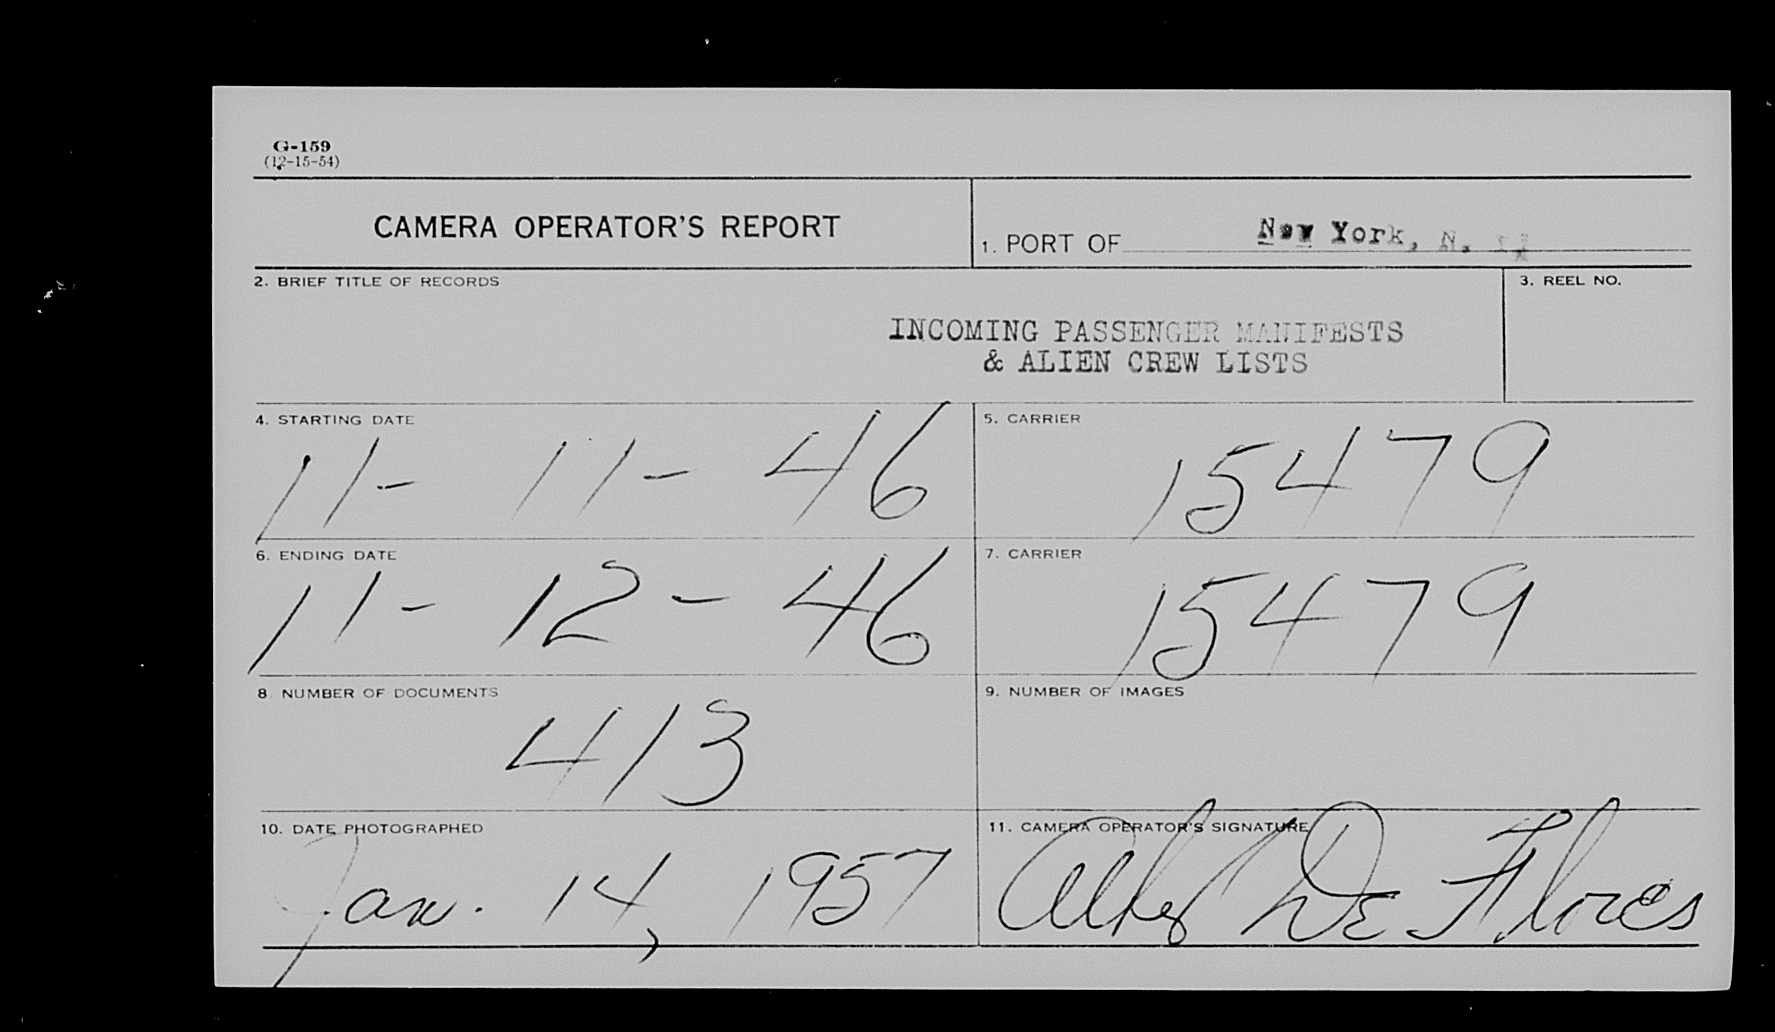 G-159
(12-15-54)
CAMERA OPERATOR'S REPORT
1. PORT OF New York, N. Y.
2. BRIEF TITLE OF RECORDS
3. REEL NO.
INCOMING PASSENGER MANIFESTS
& ALIEN CREW LISTS
4. STARTING DATE
11-11-46
5. CARRIER
15479
6. ENDING DATE
11-12-46
7. CARRIER
15479
8 NUMBER OF DOCUMENTS
413
9. NUMBER OF IMAGES
10. DATE PHOTOGRAPHED
Jan. 14, 1957
11. CAMERA OPERATOR'S SIGNATURE
De Flores